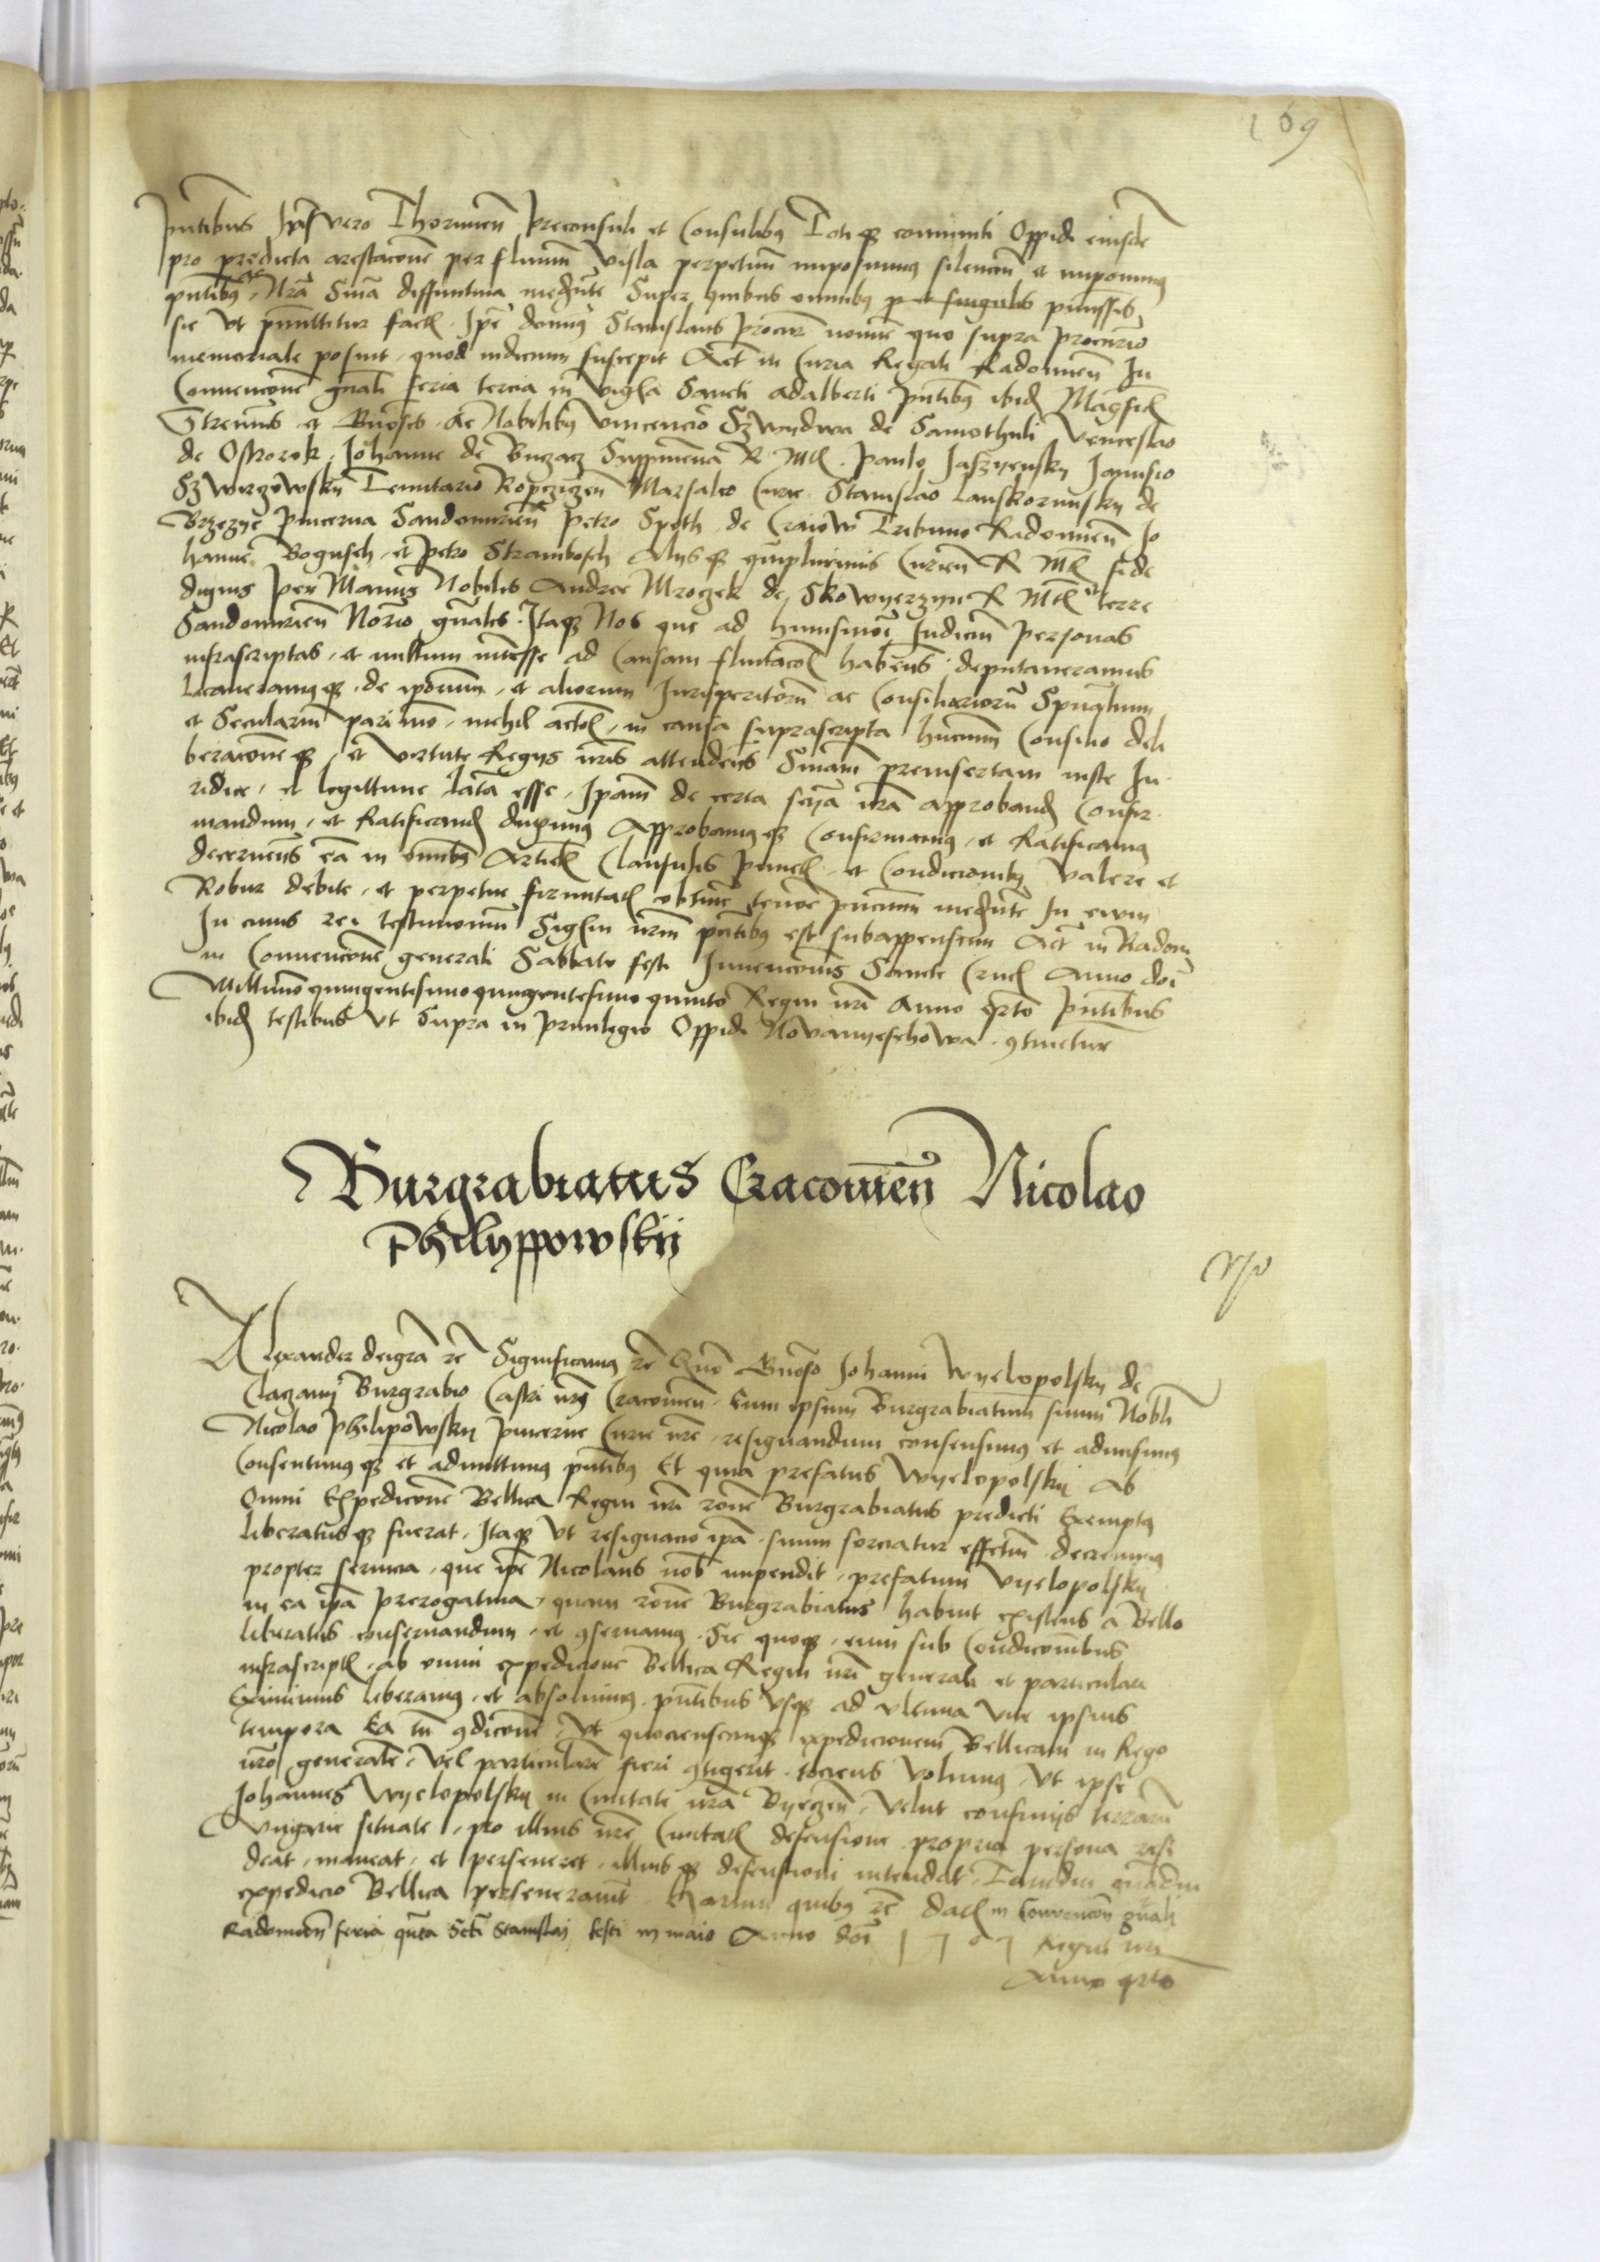 169
pntibus Ipis vero Thorunen preconsuli et Consulibus Toti qz comuniti Oppidi eiusde
pro predicta arestacone per fluuium Visla perpetuum imposuimus silencm et imponimus
pntibus nra Snia diffinitiua mediante Super quibus omnibus et singulis pmissis
sic vt pmittitur fact Ipe domnus Stanislaus procur nomine quo supra procurio
memoriale posuit quod iudicium suscepit Act in Curia Regali Radomien In
Conuencone gnali feria tercia in vigilia Sancti adalberti pntibus ibid Magfic
Strenuis et Gnosis Ac Nobilibus Vincencio Szwydwa de Samothuli Venceslao
de Ostrorok Iohanne de Buczacz Supprmena R Mtis Paulo Jaszyensky Janusio
Szwirczowsky Tenutario Ropczicen Marsalco Curie Stanislao Lanskorunsky de
Brzezye pincerna Sandomirien petro Spoth de Craiow Tribuno Radomien Io
hanne Bogusch et petro Strambosch Alys qz quaplurimis Curien R Mtis fide
dignis per Manus Nobilis Andree Mroczek de Skowyerzyn R Mtis terre
Sandomirien Norio gnalis Itaqz Nos que ad huiusmoi Iudicium personas
infrascriptas et nullum interesse ad Causam fluitacois habens deputaueramus
et Secularium pari mo nichil actis in causa suprascripta hucusm Consilio deli
beracone qz et virtute Regys nris attendens Sniam preinsertam iuste Iu
ridice et legittime lata esse Ipam de certa scia nra approband Confir
mandum et Ratificand duximus Approbamus qz Confirmamus et Ratificamus
decernens ea in omnibus Articlis Clausulis punctis et Condicionibus Valere et
Robur debite et perpetue firmitatis obtinere tenore pncium mediante In ewm
In cuius rei testimonium Sigillum nrm pntibus est subappensum Act in Radom
in Conuencone generali Sabbato festi Inuencois Sancte Crucis Anno doi
Millimo quingentesimo quingentesimo quinto Regni nri Anno qrto pntibus
ibid testibus vt Supra in priuilegio Oppidi Novamyeschowa continetur
Burgrabiatus Cracouien Nicolao
Philyppowskij
Alexander deigra re Significamus re Quo Gnoso Iohanni Wyelopolsky de
Burgrabio Castri nri Cracouien Eum ipsum Burgrabiatum suum Nobli
Nicolao Philipowsky pincerne Curie nre resignandum consensimus et admisimus
Consentimus qz et admittimus pntibus Et quia prefatus Wyelopolsky Ab
Omni Expedicone Bellica Regni nri rone Burgrabiatus predicti Exemptus
liberatus qz fuerat Itaqz vt resignacio ipa suum sorciatur effectum decreuimus
propter seruicia que ipe Nicolaus nob impendit prefatum Vyelopolsky
in ea ipa prerogatiua quam rone Burgrabiatus habuit existens a Bello
liberatus conseruandum et 9seruamus Sic quoqz eum sub Condiconibus
infrascriptis ab omni expedicione Bellica Regni nri generali et particulari
Eximimus liberamus et absoluimus pntibus vsqz ad vltima vite ipsius
tempora Ea tn 9dicone Vt quociescunqz expedicionem Bellicam in Regno
nro generale vel particulare fieri 9tigerit tociens volumus vt ipse
Iohannes Wyelopolsky in Ciuitate nra Byeczen velut confinijs terrarum
Vngarie situate pro illius nre Ciuitatis defensione propria persona resi
deat maneat et perseueret illius qz defensioni intendat Tamdiu quamdiu
expedicio Bellica perseuerauerit Harum quibus re Dat in Conuencon gnali
Radomien feria qnta Scti Stanislai festi in maio Anno doi 1505 Regni nri
Anno qrto